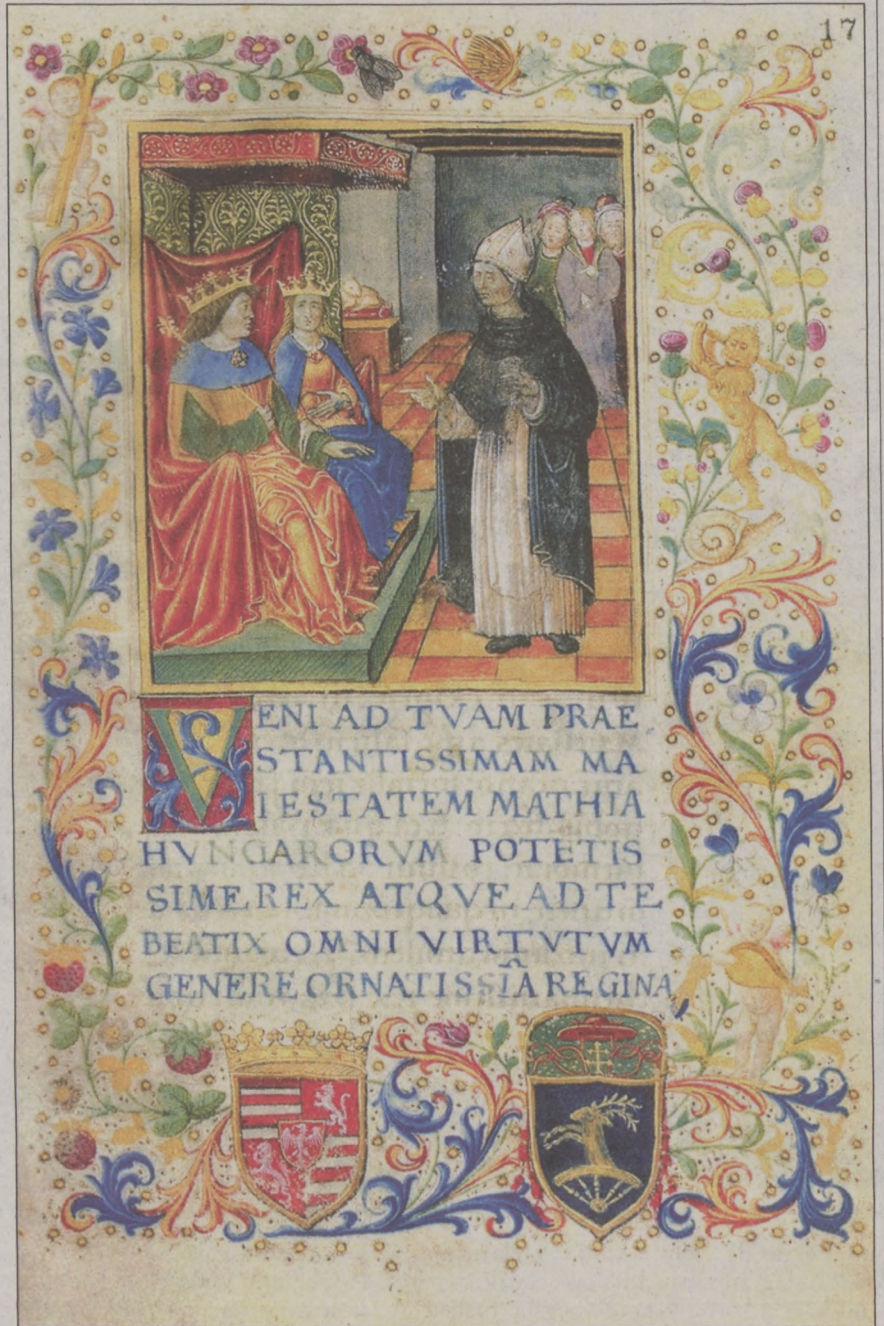 17
VENI AD TVAM PRAE
STANTISSIMAM MA
IESTATEM MATHIA
HVNGARORVM POTETIS
SIME REX ATQVE AD TE
BEATIX OMNI VIRTVTVM
GENERE ORNATISSIA REGINA